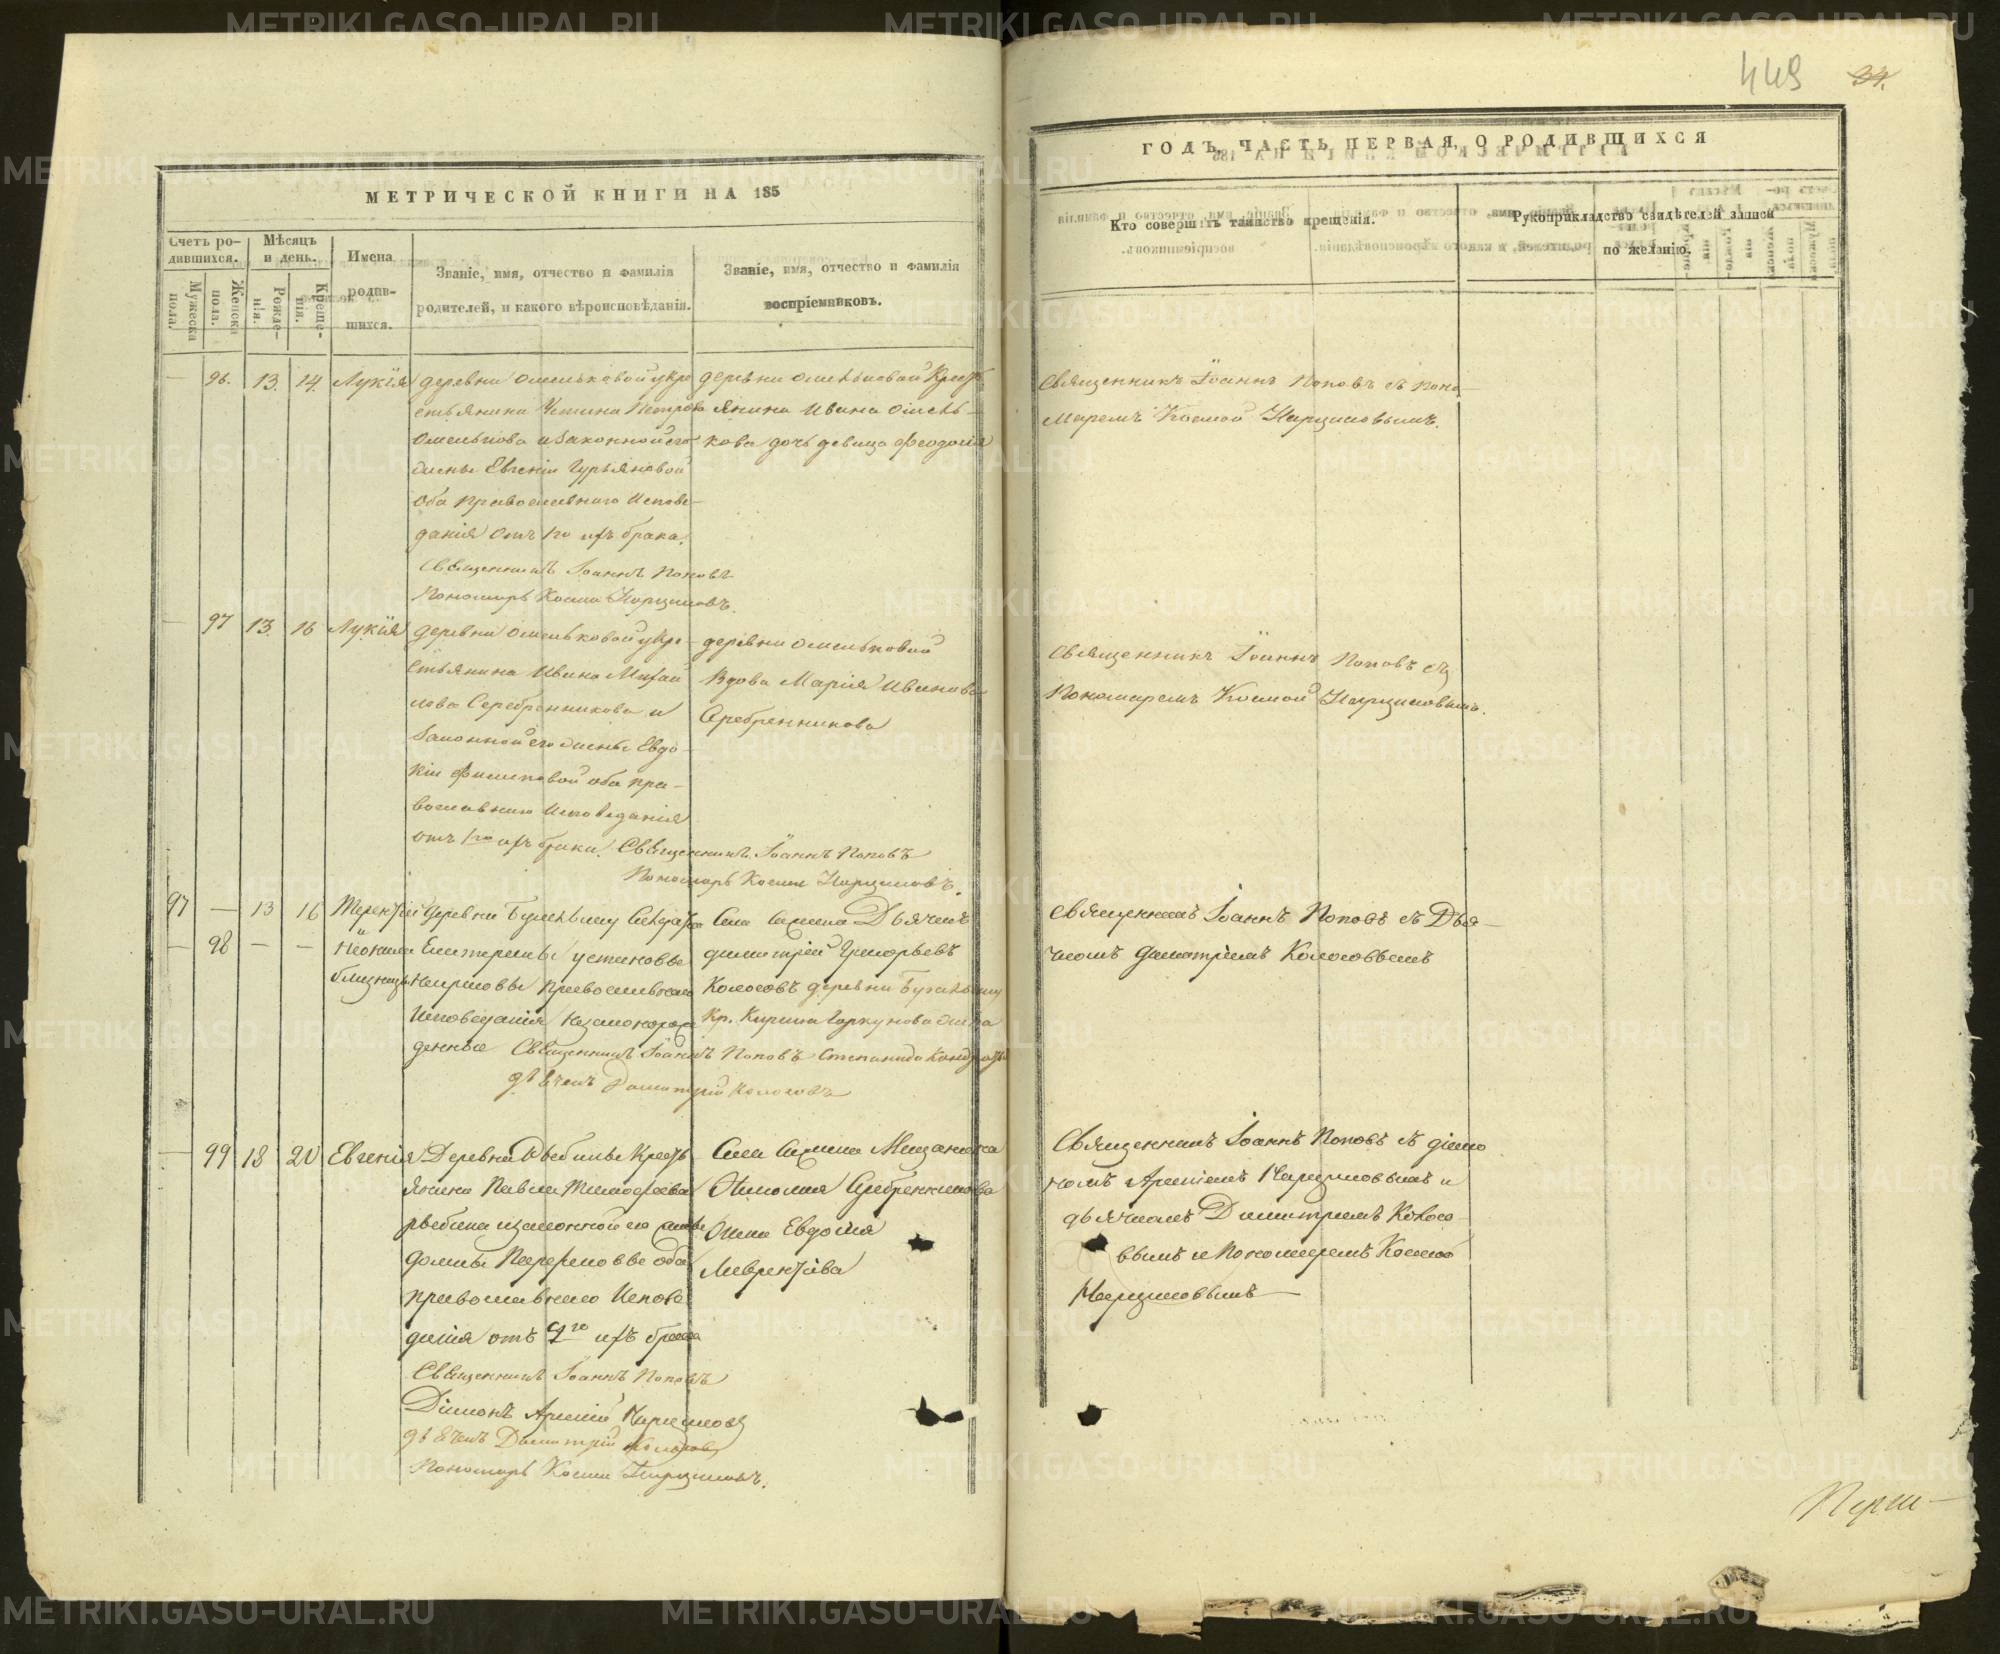 449 34.
МЕТРИЧЕСКОЙ КНИГИ НА 185
Счетъ ро-
дившихся.
Мѣсяцъ
и день.
Имена
родив-
шихся.
Званіе, имя, отчество и фамилія
родителей, и какого вѣроисповѣданія.
Званіе, имя, отчество и фамилія
воспріемниковъ.
Мужеска
пола.
Женска
пола.
Рожде-
нія.
Креще-
нія.
— 96. 13. 14. Лукія
деревни Омельковой у кре
стьянина Устина Петрова
Омелькова и законной его
жены Евгеніи Гурьяновой
Оба православнаго Испове-
данія отъ 1го ихъ брака.
Священникъ Іоаннъ Поповъ
Пономарь Косма Нарциссовъ.
деревни Омельковой Крест
янина Ивана Омель-
кова дочь девица Феодосия
— 97 13. 16 Лукія
деревни Омельковой у кре-
стьянина Ивана Михай
лова Серебренникова и
Законной его жены Евдо-
кіи Филиповой оба пра-
вославнаго Исповеданія
отъ 1го ихъ брака. Священникъ Іоаннъ Поповъ
Пономарь Косма Нарциссовъ.
деревни Омельковой
Вдова Марія Иванова
Серебренникова
97 — 13 16 Терентій
— 98 — — и Неонила
близнецы
Деревни
Екатерины Устиновы
православнаго
Исповеданія незаконорож
денные Священникъ Іоаннъ Поповъ
дьячекъ Димитрій Колосовъ
Села Дьячекъ
Димитрій Григорьевъ
Колосовъ деревни
Кр. Кирила Горкунова жена
Степанида
— 99 18 20 Евгенія
Деревни Крестъ
янина Павла Тимофеева
и законной его жены
оба
православнаго Испове
данія отъ 2го ихъ брака
Священникъ Іоаннъ Поповъ
Діаконъ Арсеній Нарциссовъ
дьячекъ Димитрій Колосовъ
Пономарь Косма Нарциссовъ.
Села Мещанина
Серебренникова
жена Евдокія
Лаврентіева
ГОДЪ, ЧАСТЬ ПЕРВАЯ, О РОДИВШИХСЯ
Кто совершилъ таинство крещенія.
Рукоприкладство свидѣтелей записи
по желанію.
Священникъ Іоаннъ Поповъ съ поно-
маремъ Космой Нарциссовымъ.
Священникъ Іоаннъ Поповъ съ
Пономаремъ Космой Нарциссовымъ.
Священникъ Іоаннъ Поповъ съ Дья-
чкомъ Димитріемъ Колосовымъ
Священникъ Іоаннъ Поповъ съ діако
номъ Арсеніемъ Нарциссовымъ и
дьячкомъ Димитріемъ Колосо-
вымъ и Пономаремъ Космой
Нарциссовымъ